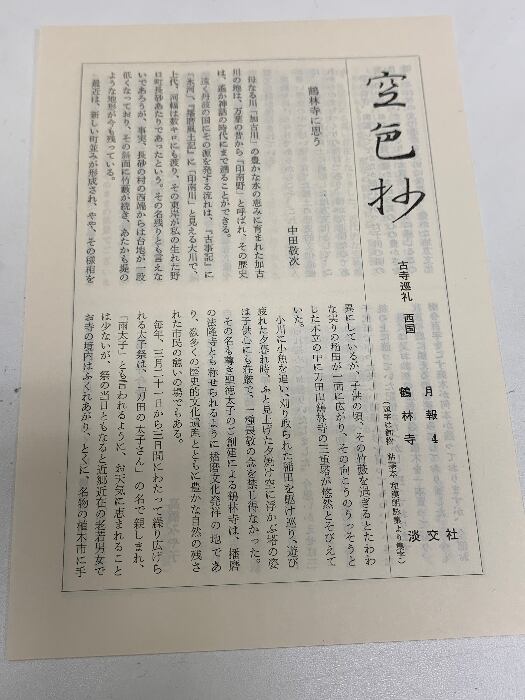 空色抄
古寺巡礼 西国
月報4
鶴林寺
淡交社
鶴林寺に思う
中田敬次
母なる川「加古川」の豊かな水の恵みに育まれた加古
川の地は、万葉の昔から「印南野」と呼ばれ、その歴史
は、遥か神話の時代にまで遡ることができる。
遠く丹波の国にその源を発する流れは、『古事記』に
「氷河」、『播磨風土記』に「印南川」と見える大川で、
上代、河幅は数キロにも渡り、その東岸が私の生れた野
口町長砂あたりであったという。その名残りとも言えな
いであろうが、事実、長砂の村の西端からは台地が一段
低くなっており、その斜面に竹藪が続き、あたかも堤の
ような地形が今も残っている。
最近は、新しい町並みが形成され、やや、その様相を
異にしているが、子供の頃、その竹藪を過ぎるとたわわ
な実りの稲田が一面に広がり、その向こうのうっそうと
した木立の中に刀田山鶴林寺の三重塔が悠然とそびえて
いた。
小川に小魚を追い、刈り取られた稲田を駆け巡り、遊び
疲れた夕暮れ時、ふと見上げた夕焼け空に浮かぶ塔の姿
は子供心にも荘厳で、一種畏敬の念を禁じ得なかった。
その名も尊き聖徳太子のご創建による鶴林寺は、播磨
の法隆寺とも称せられるように播磨文化発祥の地であ
り、数多くの歴史的文化遺産とともに豊かな自然の残さ
れた市民の憩いの場でもある。
毎年、三月二十一日から三日間にわたって繰り広げら
れる太子祭は、「刀田の太子さん」の名で親しまれ、
「雨太子」とも言われるように、お天気に恵まれること
は少ないが、祭の当日ともなると近郷近在の老若男女で
お寺の境内はふくれあがり、とくに、名物の植木市に手